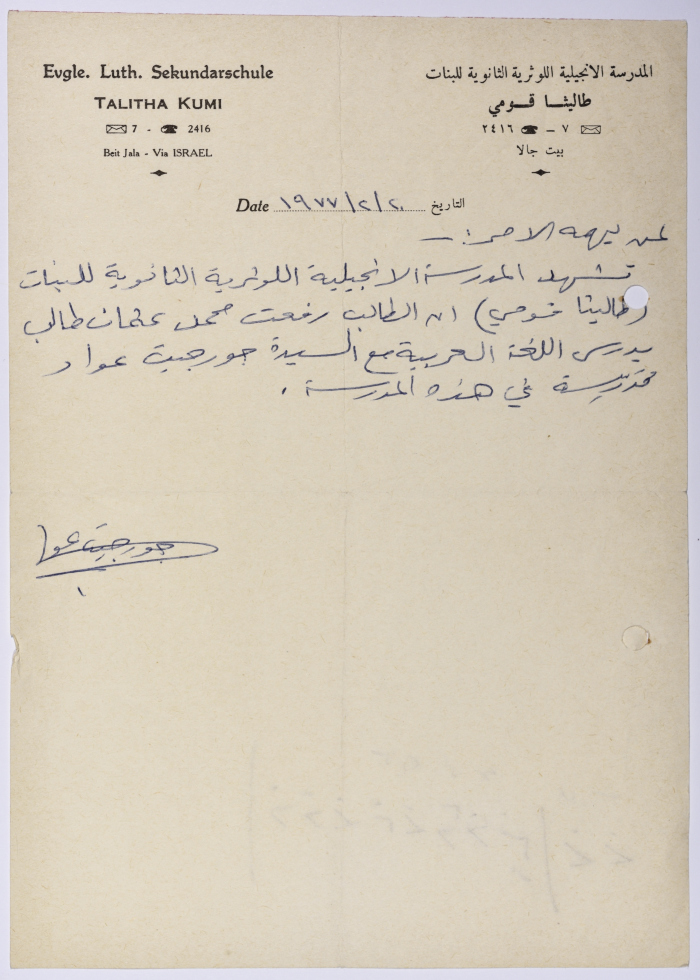 Evgle. Luth. Sekundarschule
TALITHA KUMI
7 - 2416
Beit Jala - Via ISRAEL
المدرسة الانجيلية اللوثرية الثانوية للبنات
طاليثا قومي
٧ – ٢٤١٦
بيت جالا
Date ١٩٧٧/٢/٢٠ التاريخ
لمن يهمه الامر :ـ
تشهد المدرسة الانجيلية اللوثرية الثانوية للبنات
(طاليثا قومي) ان الطالب رفعت محمد عثمان طالب
يدرس اللغة العربية مع السيدة جورجيت عواد
مدرّسة في هذه المدرسة .
جورجيت عواد